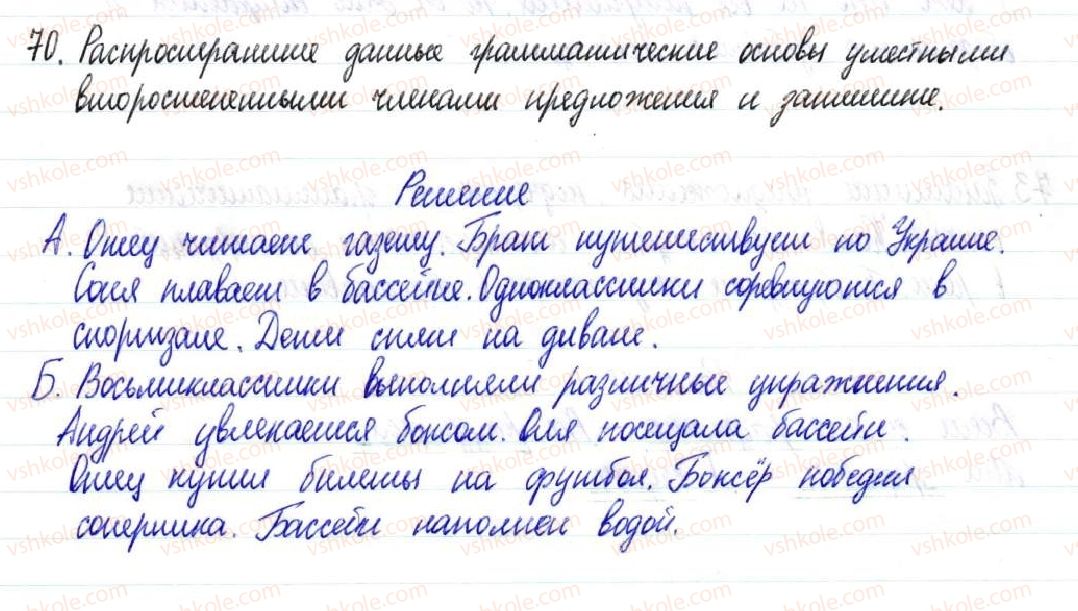 70. Распространите данные грамматические основы уместными
второстепенными членами предложения и запишите.
Решение
А. Отец читает газету. Брат путешествует по Украине.
Соня плавает в бассейне. Одноклассники соревнуются в
спортзале. Дети спят на диване.
Б. Восьмиклассники выполняли различные упражнения.
Андрей увлекается боксом. Оля посещала бассейн.
Отец купил билеты на футбол. Боксёр победил
соперника. Бассейн наполнен водой.